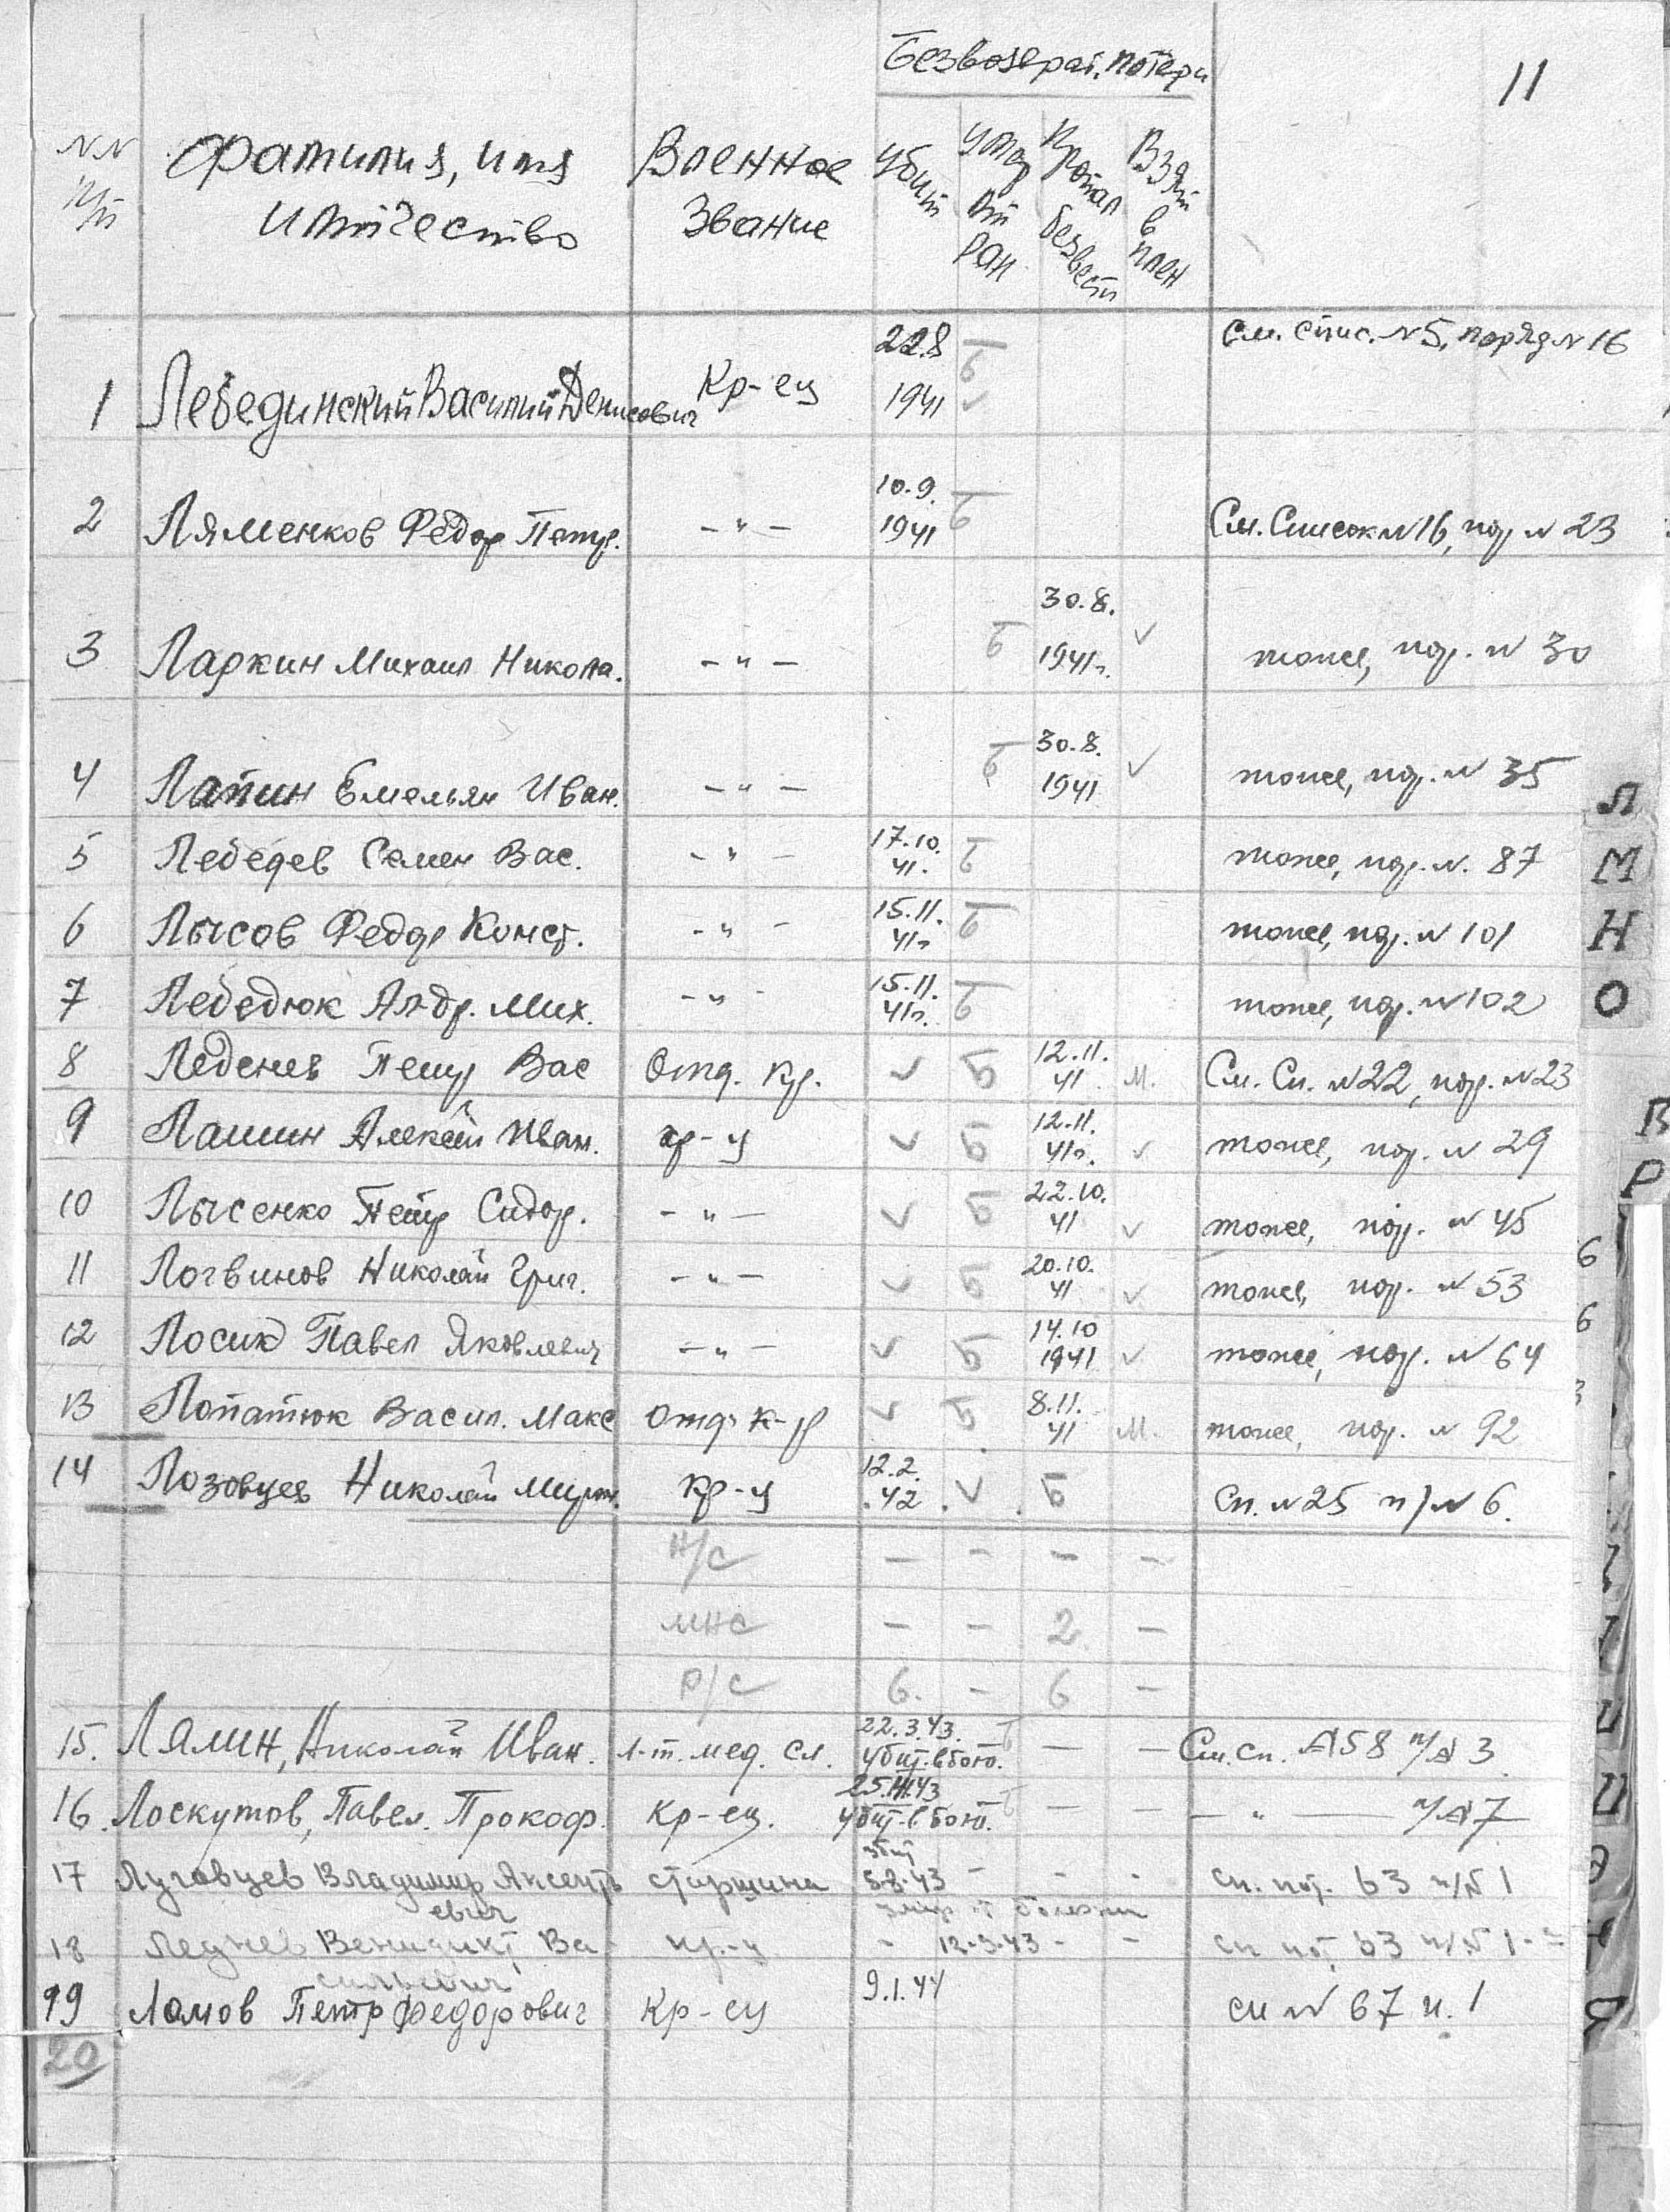 Безвозврат. потери
11
NN п/п Фамилия, имя и отчество Военное звание убит умер от ран пропал безвести Взят в плен
1 Лебединский Василий Денисович Кр-ец 22.8 1941 Б ✓ См. спис. N5, поряд N 16
2 Ляменков Федор Петр. -"- 10.9. 1941 Б См. Список N16, пор N 23
3 Ларкин Михаил Никола. -"- Б 30.8. 1941г. ✓ тоже, пор. N 30
4 Лапин Емельян Иван. -"- Б 30.8. 1941 ✓ тоже, пор. N 35
5 Лебедев Семен Вас. -"- 17.10. 41. Б тоже, пор. N. 87
6 Лысов Федор Конст. -"- 15.11. 41г Б тоже, пор. N 101
7 Лебедюк Ал-др. Мих. -"- 15.11. 41г. Б тоже, пор. N 102
8 Леденев Петр Вас Отд. кр. ✓ Б 12.11. 41 М. См. Сп. N22, пор. N23
9 Лашин Алексей Иван. кр-ц ✓ Б 12.11. 41г. ✓ тоже, пор. N 29
10 Лысенко Петр Сидор. -"- ✓ Б 22.10. 41 ✓ тоже, пор. N 45
11 Логвинов Николай Григ. -"- ✓ Б 20.10. 41 ✓ тоже, пор. N 53
12 Лосик Павел Яковлевич -"- ✓ Б 14.10 1941 ✓ тоже, пор. N 64
13 Лопатюк Васил. Макс Отд. к-р ✓ Б 8.11. 41 М. тоже, пор. N 92
14 Лозовцев Николай кр-ц 12.2. .42 . ✓ . Б Сп. N25 п/N 6.
Н/С - - - -
МНС - - 2 -
Р/С 6. - 6 -
15. Лялин, Николай Иван. л-т. мед. сл. 22.3.43. убит в бою. Б - - См. сп. N58 п/N 3
16. Лоскутов, Павел. Прокоф. Кр-ец. 25.III.43 убит в бою. Б - - - " - п/N7
17 Луговцев Владимир Аксентьевич старшина убит 5.8.43 - - - сп. пот. 63 п/N 1
18 Леднев Венидикт Васильевич кр-ц - умер от болезни 12.3.43 - - сп пот 63 п/N 1
19 Ломов Петр Федорович Кр-ец 9.1.44 сп N 67 п. 1
20
Л
М
Н
О
В
Р
6
6
3
Я